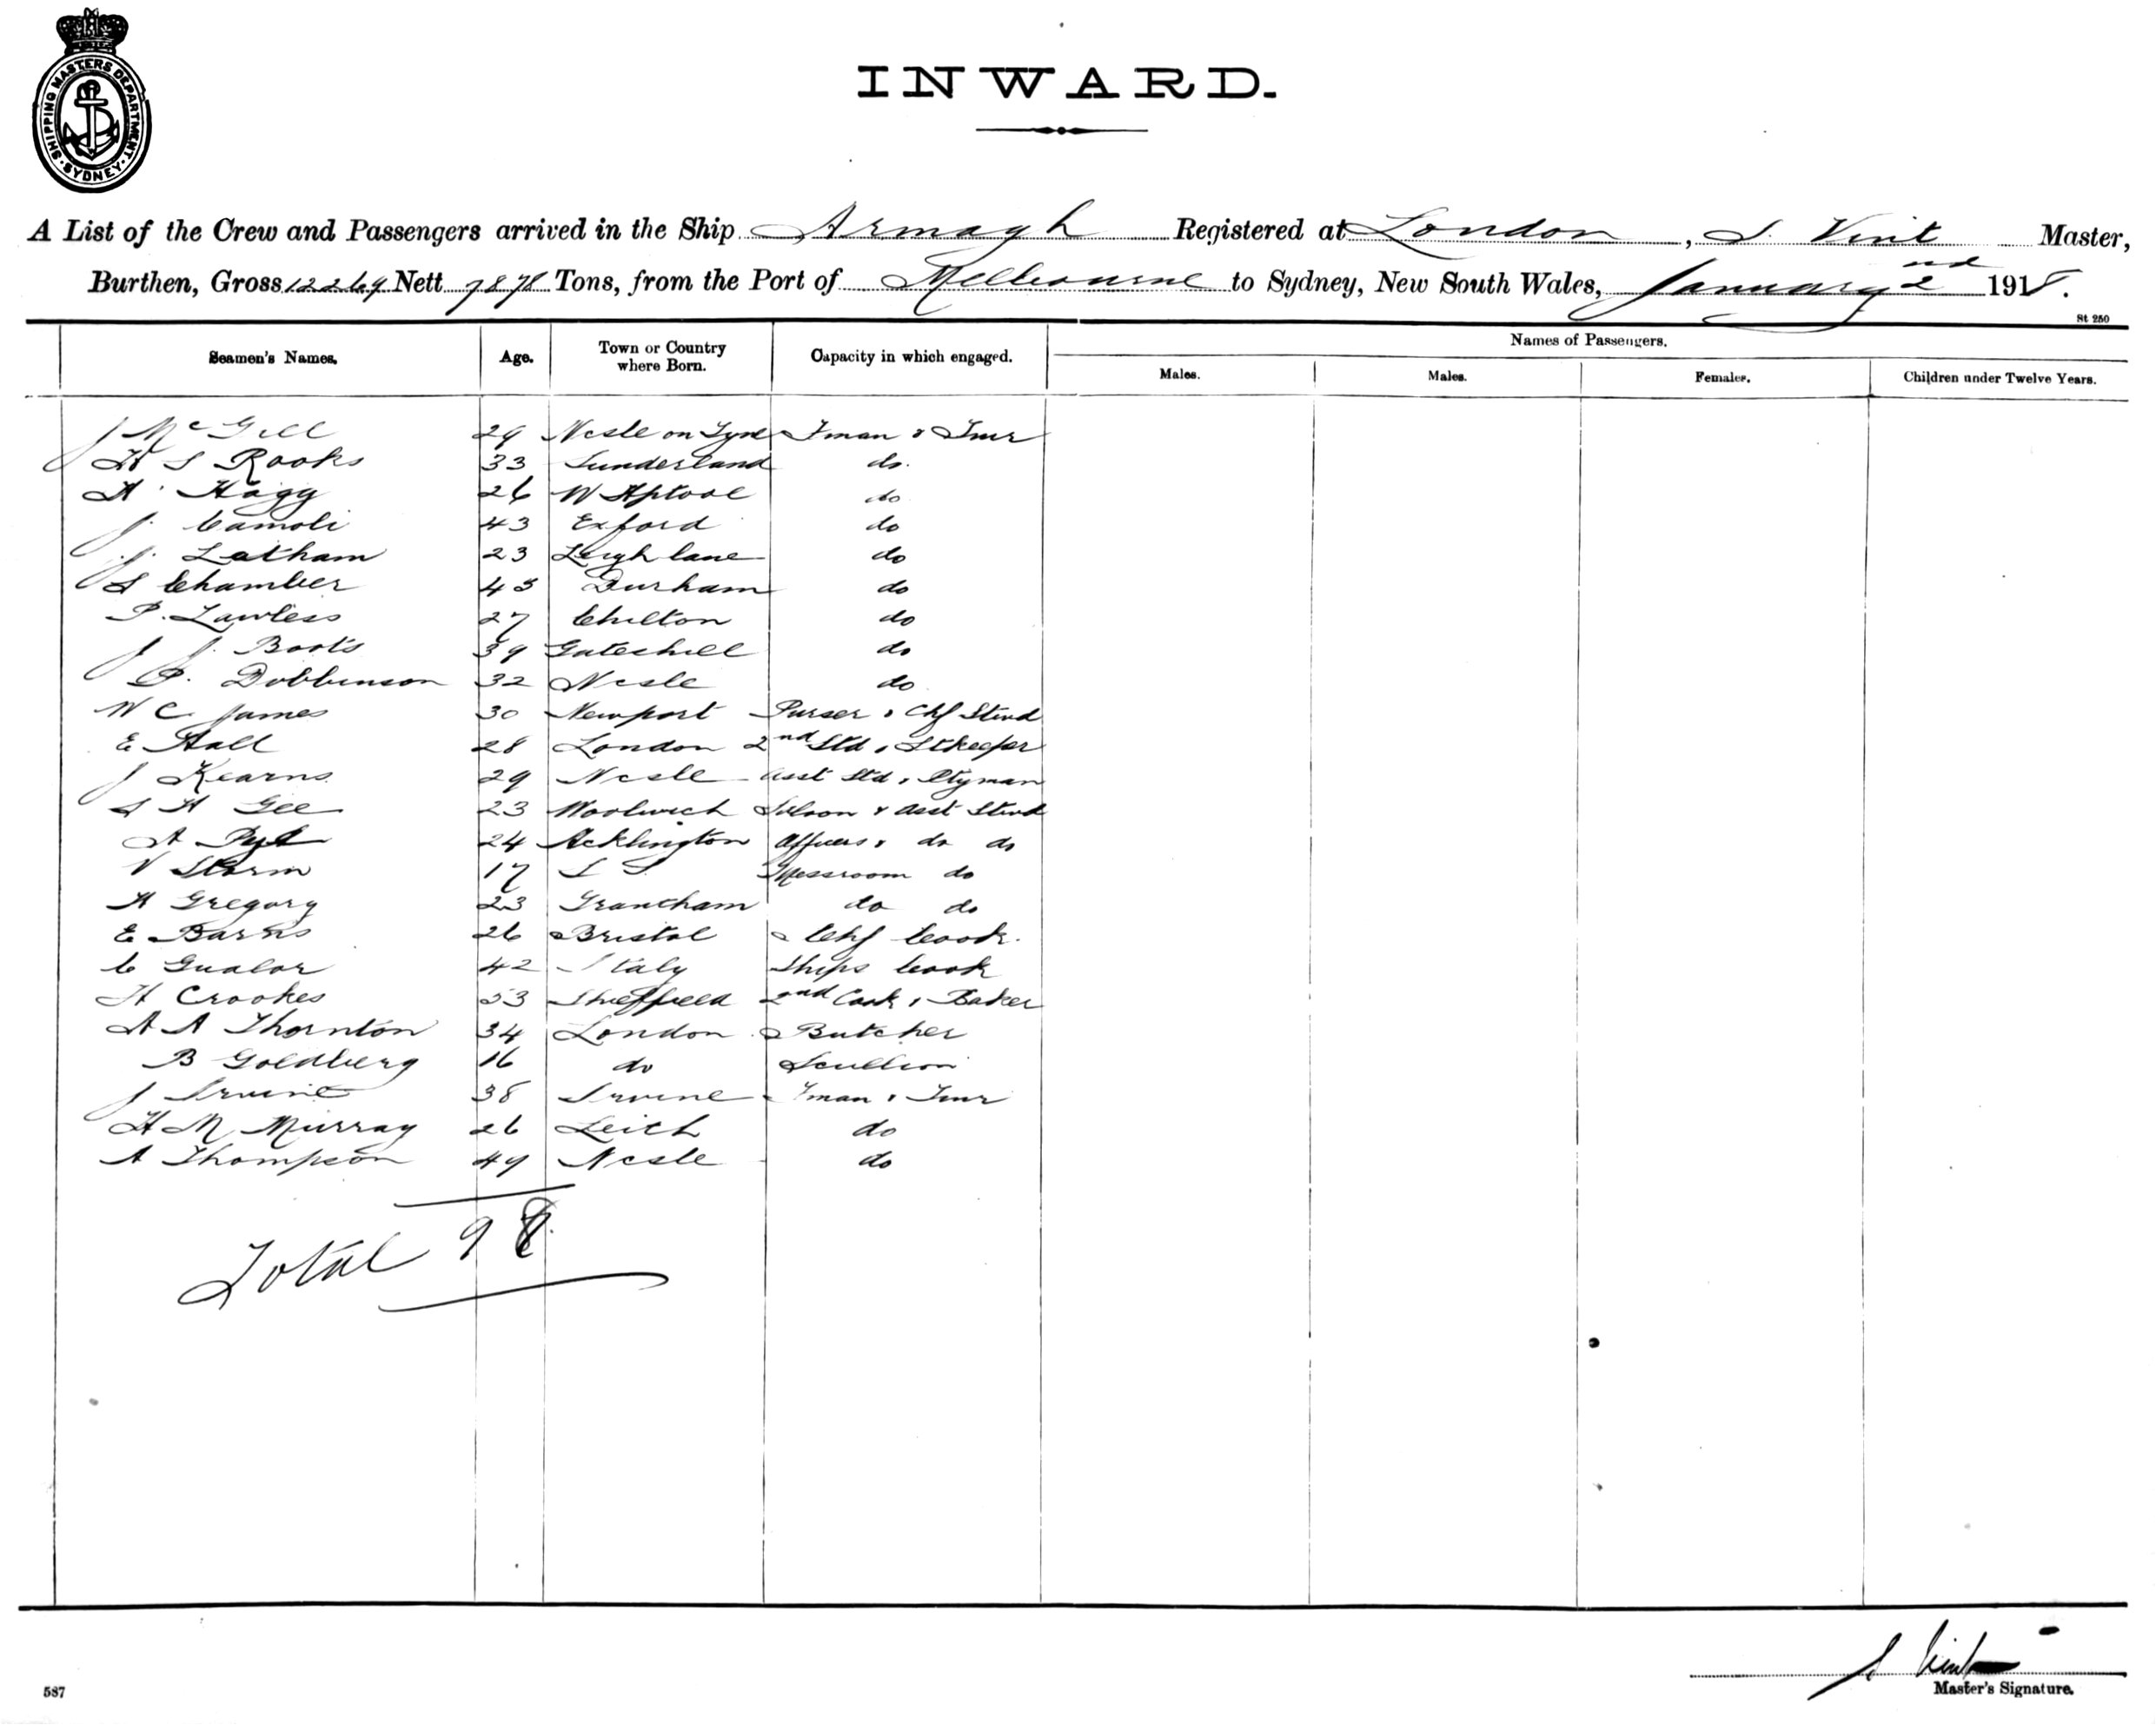 SHIPPING MASTERS DEPARTMENT · SYDNEY ·
INWARD.
A List of the Crew and Passengers arrived in the Ship Armagh Registered at London, S. Vint Master,
Burthen, Gross 12269 Nett 7878 Tons, from the Port of Melbourne to Sydney, New South Wales, January 2nd 1918.
St 250
Seamen's Names. Age. Town or Country where Born. Capacity in which engaged. Names of Passengers.
Males. Males. Females. Children under Twelve Years.
J McGill 29 Ncsle on Tyne Fman & Tmr
H S Rooks 33 Sunderland do.
H. Hagg 26 W Hptool do
J. Camoli 43 Exford do
J. Latham 23 Leigh lane do
S Chamber 43 Durham do
P. Lawless 27 Chilton do
J J. Boots 39 Gateshill do
P. Dobbinson 32 Ncsle do
W C James 30 Newport Purser & Chf Stwd
E Hall 28 London 2nd Std & Stkeeper
J Kearns 29 Ncsle Asst Std & Ptyman
S H Gee 23 Woolwich Saloon & Asst Stwd
A Pye 24 Acklington Officers & do do
V Storm 17 S S Messroom do
H Gregory 23 Grantham do do
E Barns 26 Bristol Chf Cook.
C Gualor 42 Italy Ships Cook
H Crookes 53 Sheffield 2nd Cook & Baker
A A Thornton 34 London Butcher
B Goldberg 16 do Scullion
J Irvine 38 Irvine Fman & Tmr
H M Murray 26 Leith do
A Thompson 49 Ncsle do
Total 98
S Vint
Master's Signature.
587